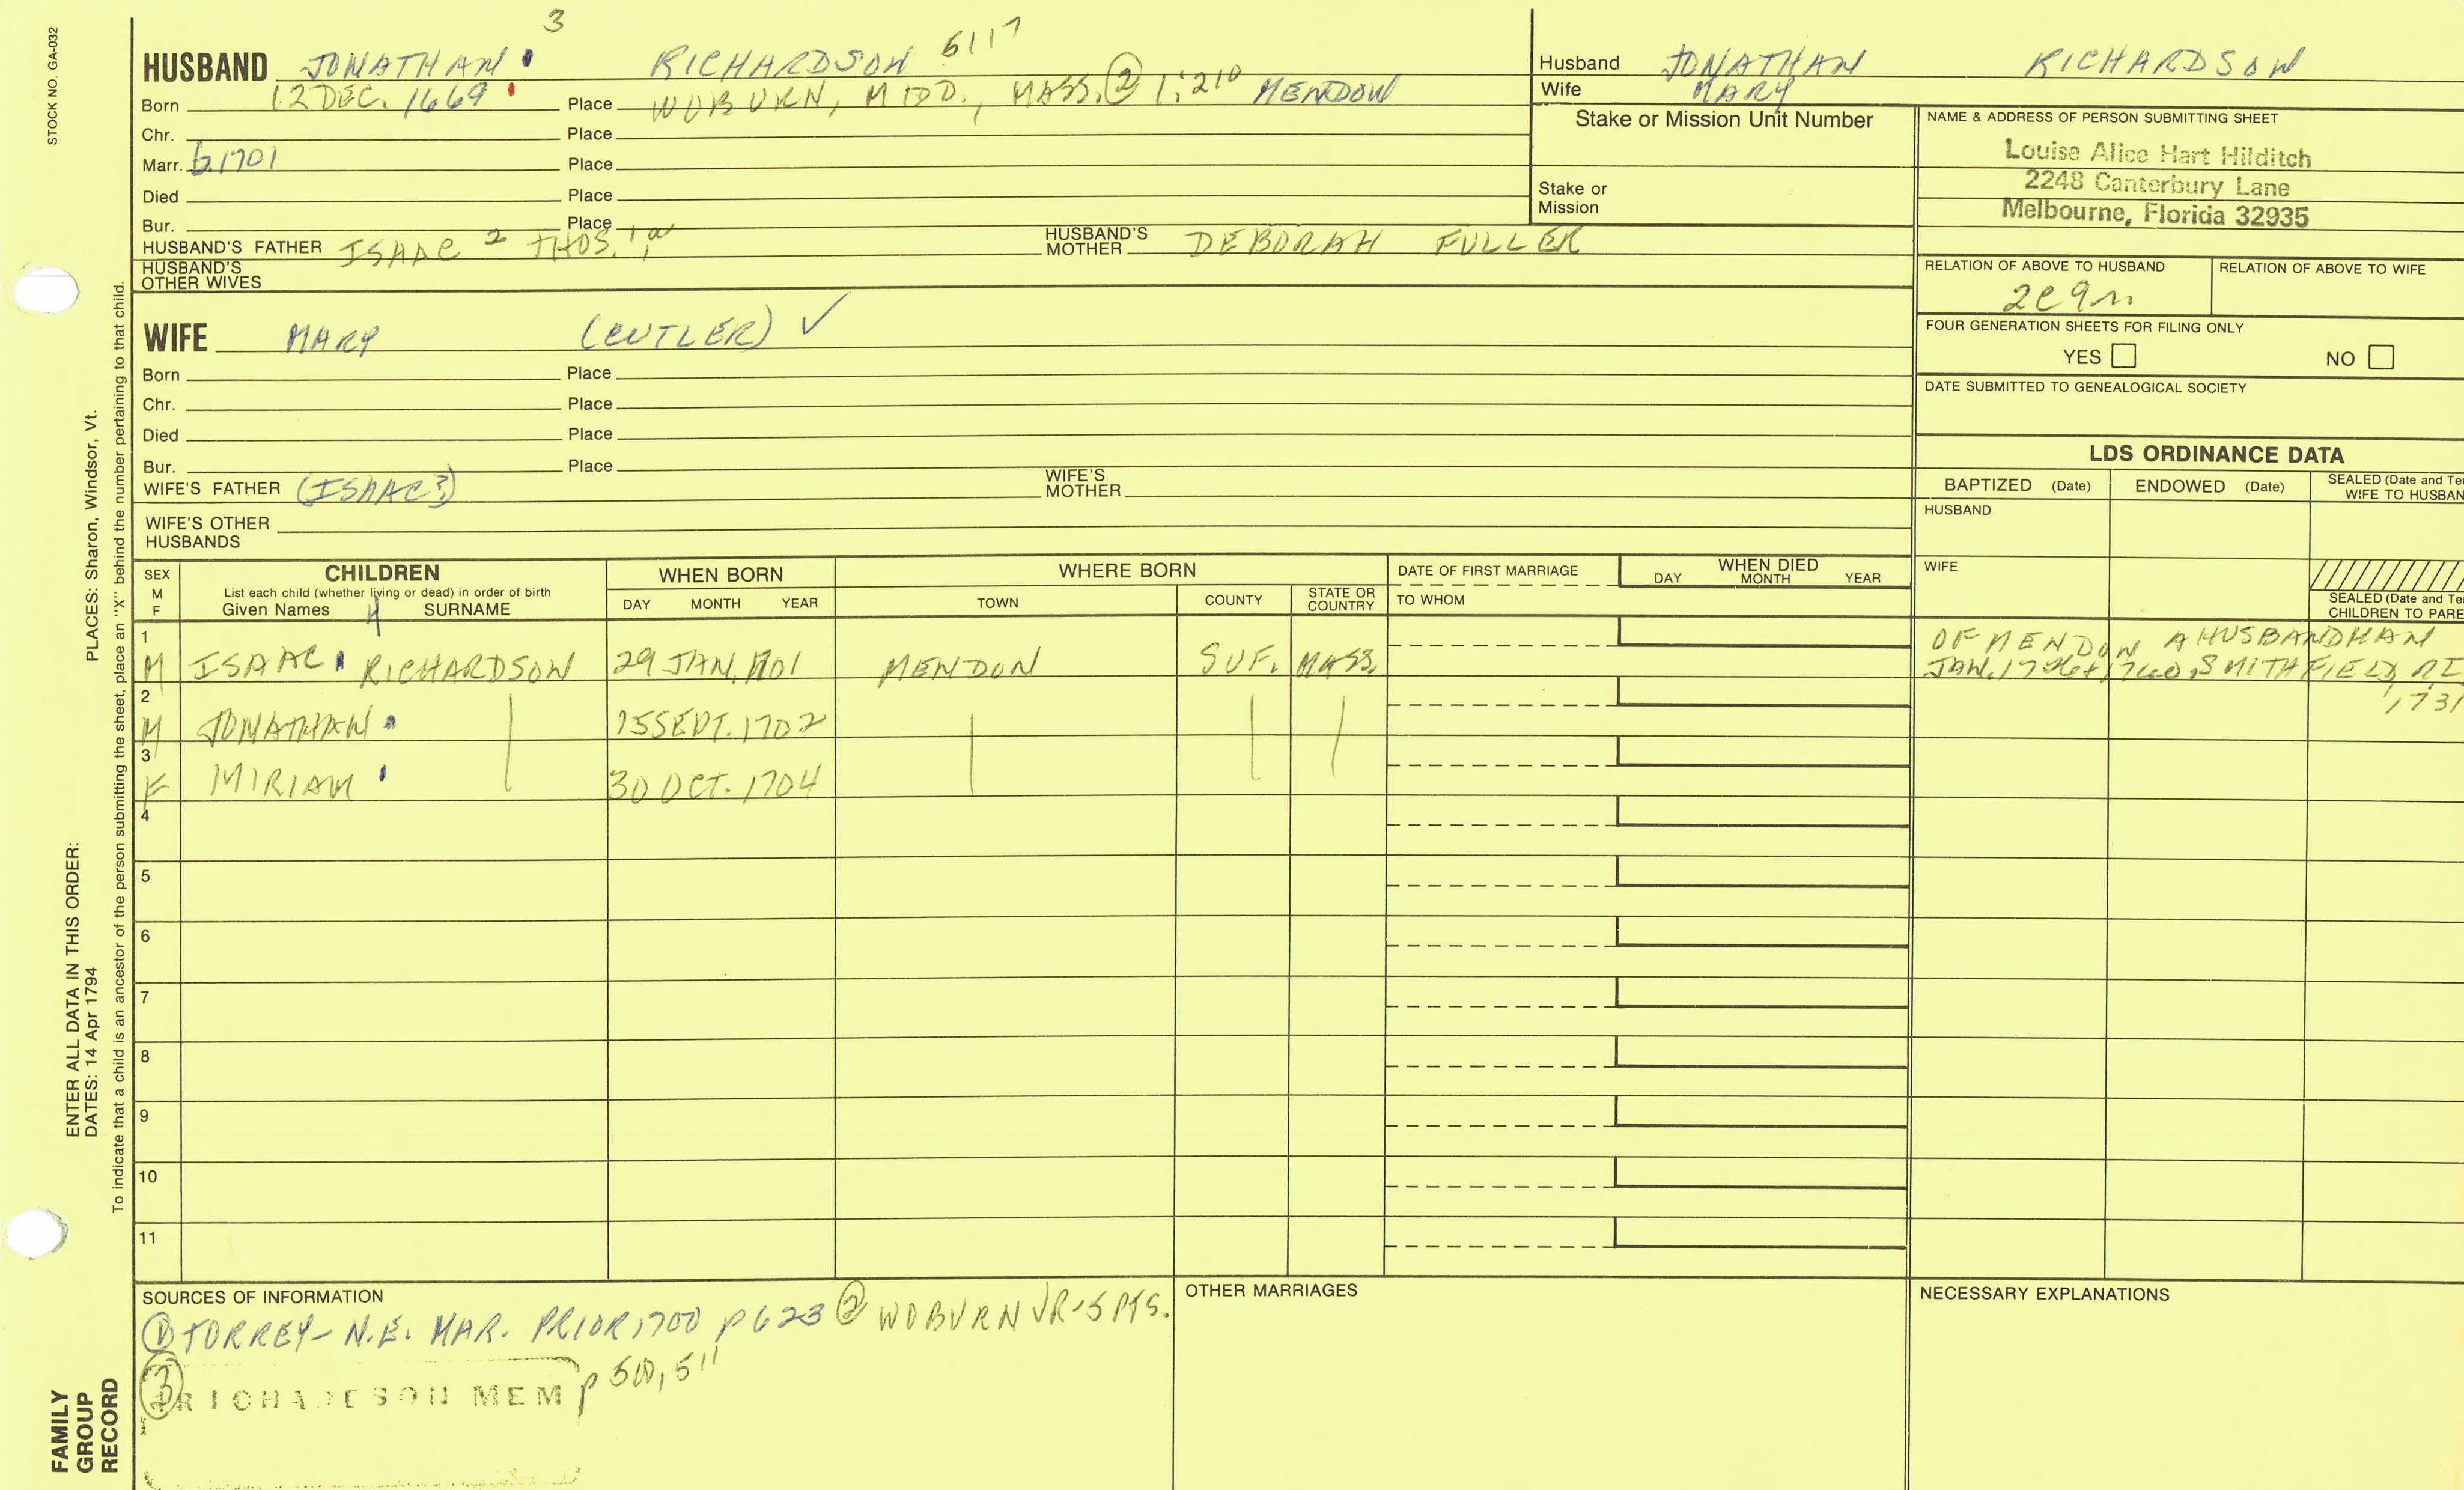 STOCK NO. GA-032
3
HUSBAND JONATHAN RICHARDSON 6117
Born 12 DEC. 1669 Place WOBURN, MIDD., MASS. ② 1:210 MENDON
Chr. Place
Marr. b. 1701 Place
Died Place
Bur. Place
HUSBAND'S FATHER ISAAC 2 THOS. 1 HUSBAND'S MOTHER DEBORAH FULLER
HUSBAND'S OTHER WIVES
WIFE MARY (CUTLER) ✓
Born Place
Chr. Place
Died Place
Bur. Place
WIFE'S FATHER (ISAAC?) WIFE'S MOTHER
WIFE'S OTHER HUSBANDS
Husband JONATHAN RICHARDSON
Wife MARY
Stake or Mission Unit Number
Stake or Mission
NAME & ADDRESS OF PERSON SUBMITTING SHEET
Louise Alice Hart Hilditch
2248 Canterbury Lane
Melbourne, Florida 32935
RELATION OF ABOVE TO HUSBAND RELATION OF ABOVE TO WIFE
FOUR GENERATION SHEETS FOR FILING ONLY
YES NO
DATE SUBMITTED TO GENEALOGICAL SOCIETY
LDS ORDINANCE DATA
BAPTIZED (Date) ENDOWED (Date) SEALED (Date and Te
WIFE TO HUSBAN
HUSBAND
WIFE
SEALED (Date and Te
CHILDREN TO PARE
SEX M F CHILDREN WHEN BORN WHERE BORN DATE OF FIRST MARRIAGE WHEN DIED
List each child (whether living or dead) in order of birth
Given Names 4 SURNAME DAY MONTH YEAR TOWN COUNTY STATE OR COUNTRY TO WHOM DAY MONTH YEAR
1 M ISAAC RICHARDSON 29 JAN. 1701 MENDON SUF. MASS. OF MENDON A HUSBANDMAN
JAN. 1726 + 1740, SMITHFIELD RI
1731
2 M JONATHAN 15 SEPT. 1702
3 F MIRIAM 30 OCT. 1704
4
5
6
7
8
9
10
11
SOURCES OF INFORMATION
① TORREY - N.E. MAR. PRIOR 1700 p 623 ② WOBURN VR - 5 PTS.
③ RICHARDSON MEM p 510, 511
OTHER MARRIAGES
NECESSARY EXPLANATIONS
PLACES: Sharon, Windsor, Vt.
ENTER ALL DATA IN THIS ORDER:
DATES: 14 Apr 1794
To indicate that a child is an ancestor of the person submitting the sheet, place an "X" behind the number pertaining to that child.
FAMILY
GROUP
RECORD